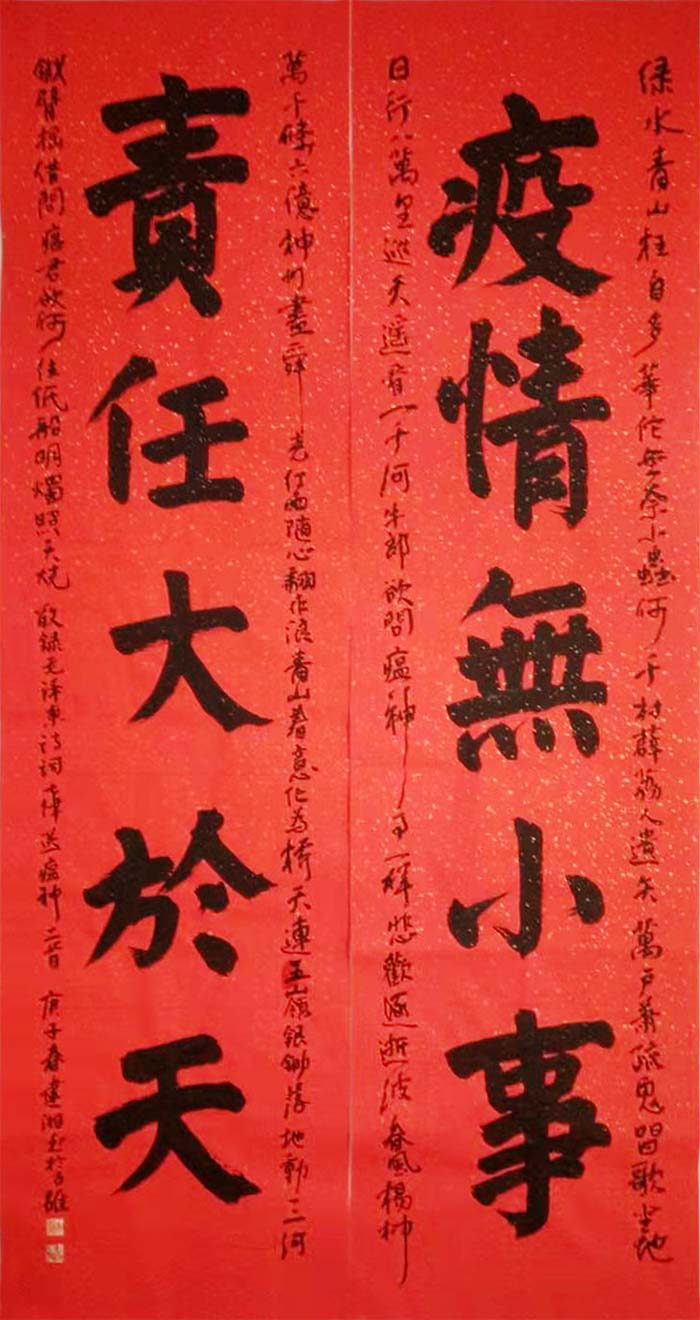 绿水青山枉自多華佗無奈小蟲何千村薜荔人遺矢萬户萧疏鬼唱歌坐地
疫情無小事
日行八萬里巡天遥看一千河牛郎欲問瘟神事一样悲歡逐逝波春風楊柳
萬千條六億神州盡舜堯红雨隨心翻作浪青山着意化為橋天連五嶺銀鋤落地動三河
責任大於天
鐵臂摇借問瘟君欲何往纸船明燭照天烧 敬録毛泽東诗词七律送瘟神二首 庚子春建湘书於